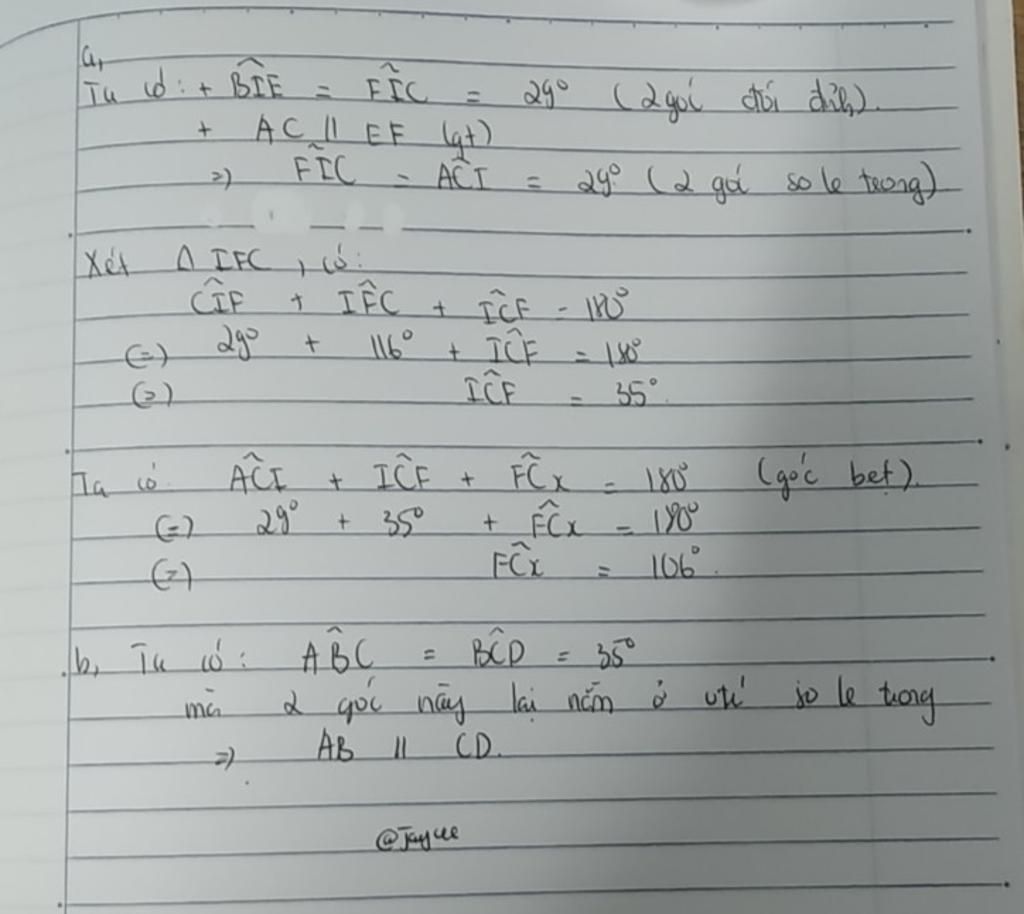 a,
Ta có: + BÎE = FÎC = 29° (2 góc đối đỉnh).
+ AC // EF (gt)
=> FÎC = AĈI = 29° (2 góc so le trong)
Xét Δ IFC, có:
CÎF + IF̂C + IĈF = 180°
(=) 29° + 116° + IĈF = 180°
(=) IĈF = 35°.
Ta có AĈI + IĈF + FĈx = 180° (góc bẹt).
(=) 29° + 35° + FĈx = 180°
(=) FĈx = 106°.
b, Ta có: AB̂C = BĈD = 35°
mà 2 góc này lại nằm ở vtrí so le trong
=> AB // CD.
@Jaycee